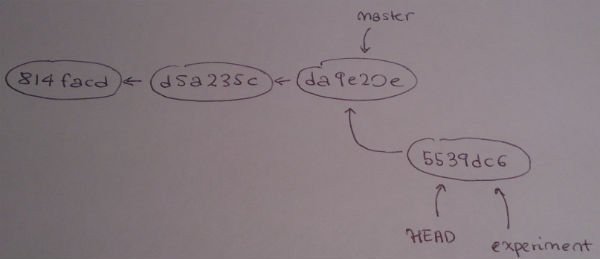 master
814facd
d5a235c
da9e20e
5539dc6
HEAD
experiment